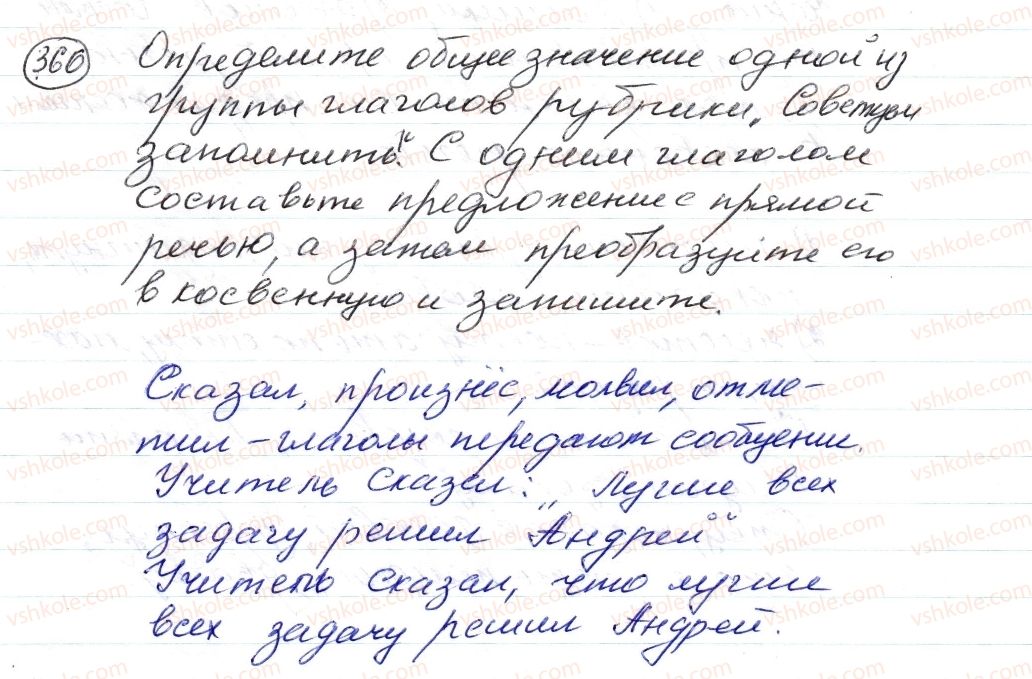 366 Определите общее значение одной из
группы глаголов рубрики „Советуем
запомнить". С одним глаголом
составьте предложение с прямой
речью, а затем преобразуйте его
в косвенную и запишите.
Сказал, произнёс, молвил, отме-
тил - глаголы передают сообщение.
Учитель сказал: „Лучше всех
задачу решил Андрей"
Учитель сказал, что лучше
всех задачу решил Андрей.